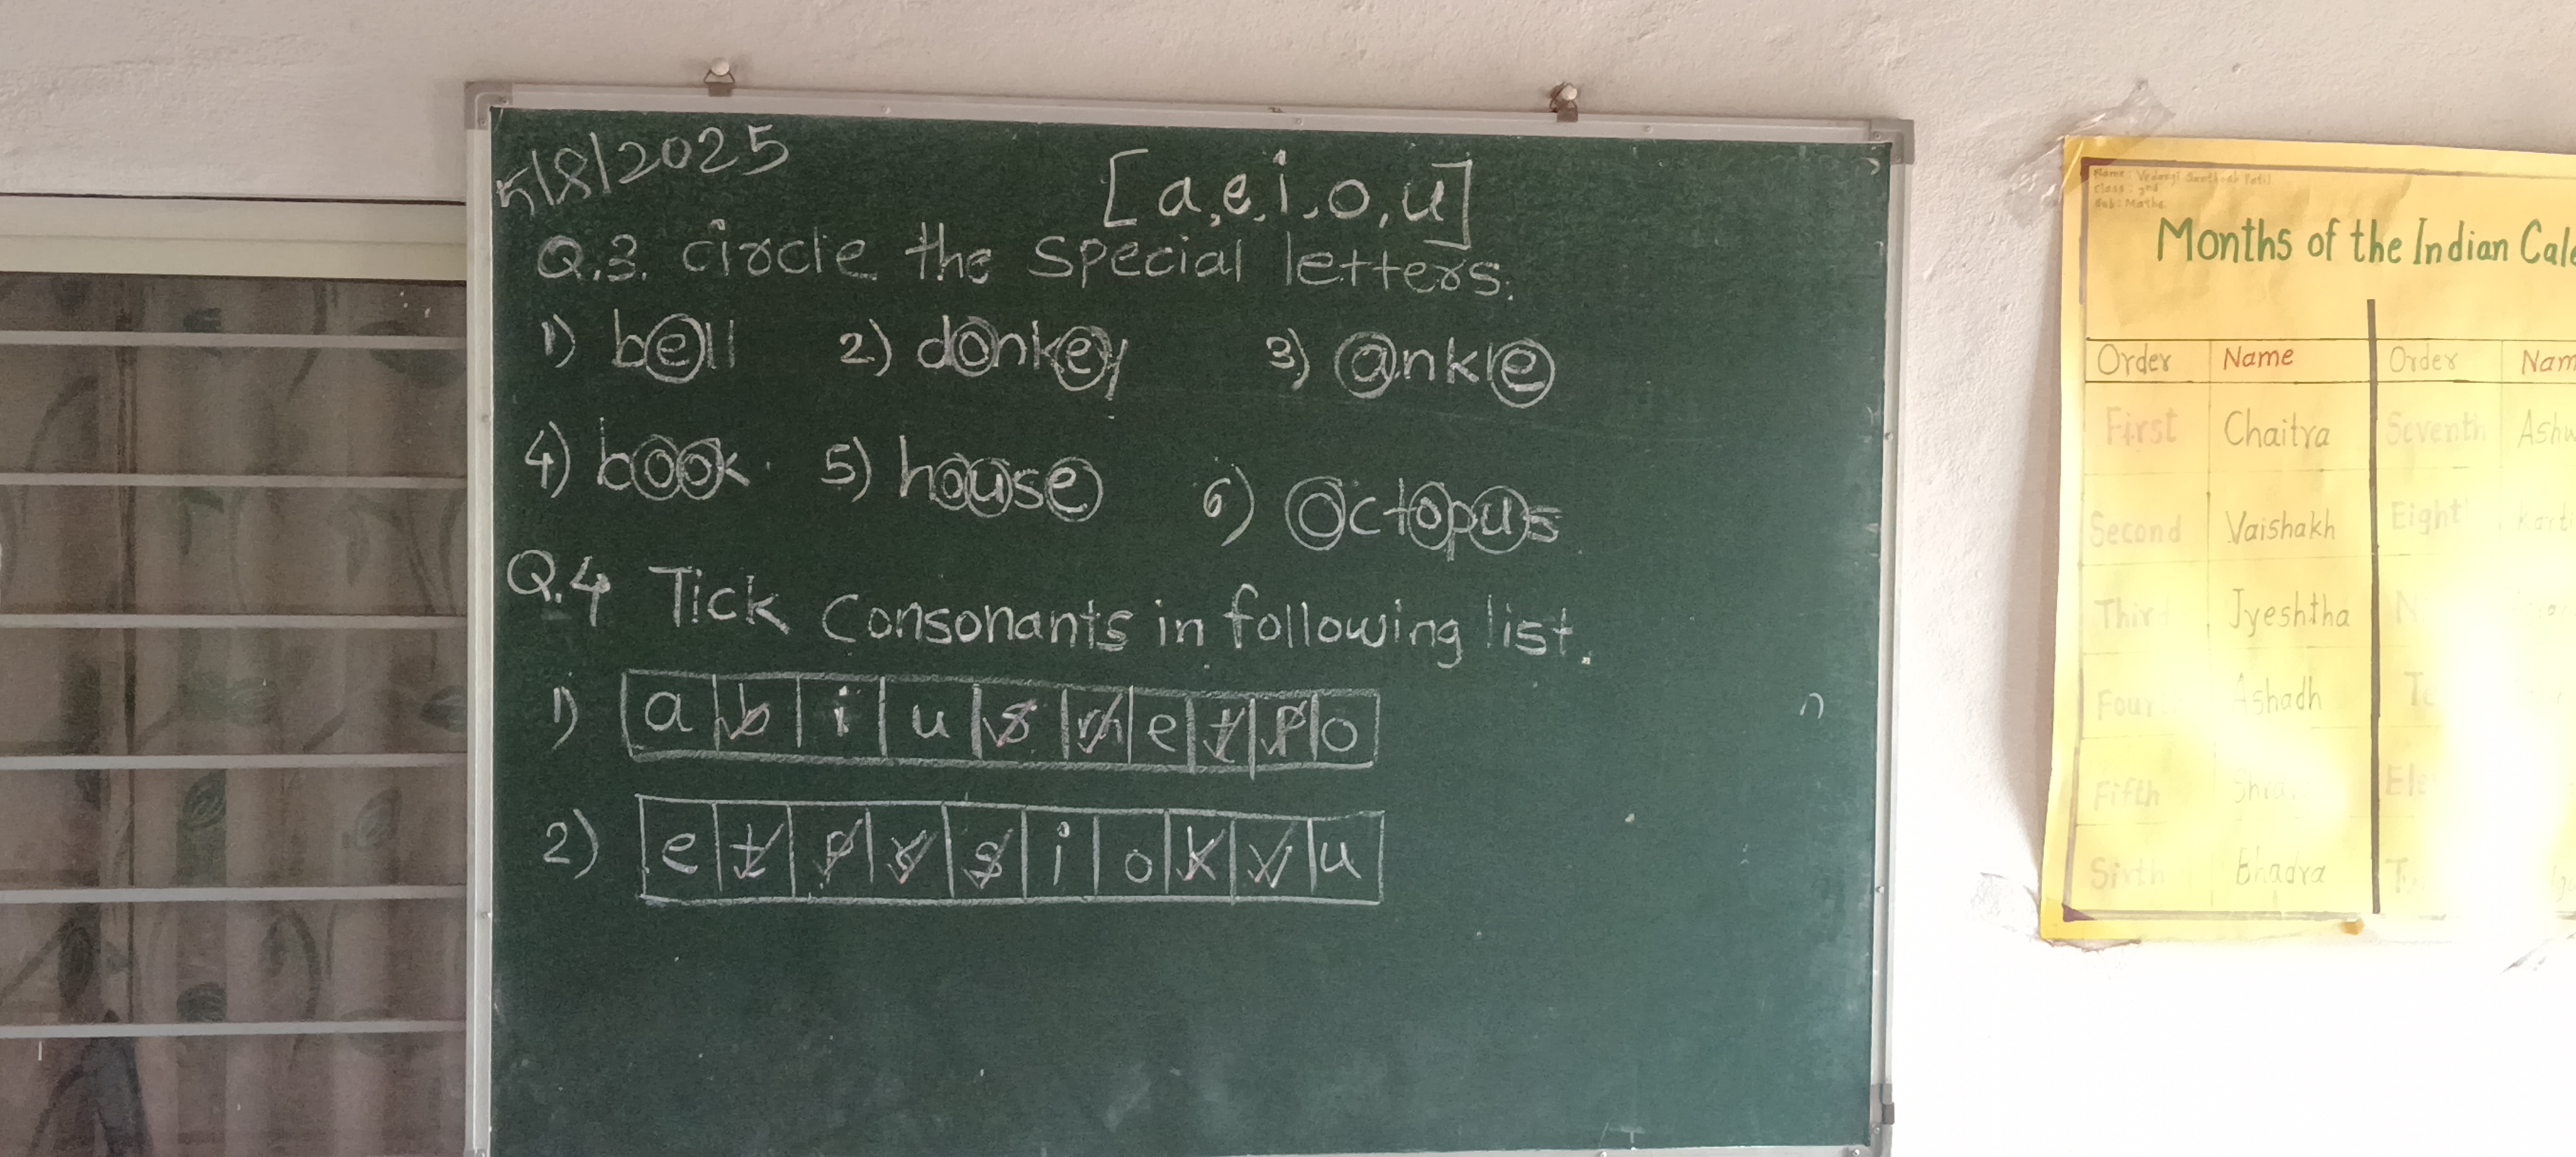 5/8/2025
[a, e, i, o, u]
Q.3. circle the special letters.
1) bell 2) donkey 3) ankle
4) book 5) house 6) Octopus
Q.4 Tick consonants in following list.
1) a b i u s n e t p o
2) e t p r s i o k v u
Name: Vedangi Santhosh Patil
Class: 3rd
Sub: Maths
Months of the Indian
Order Name Order
First Chaitra Seventh
Second Vaishakh Eight
Third Jyeshtha
Four Ashadh
Fifth
Sixth Bhadra